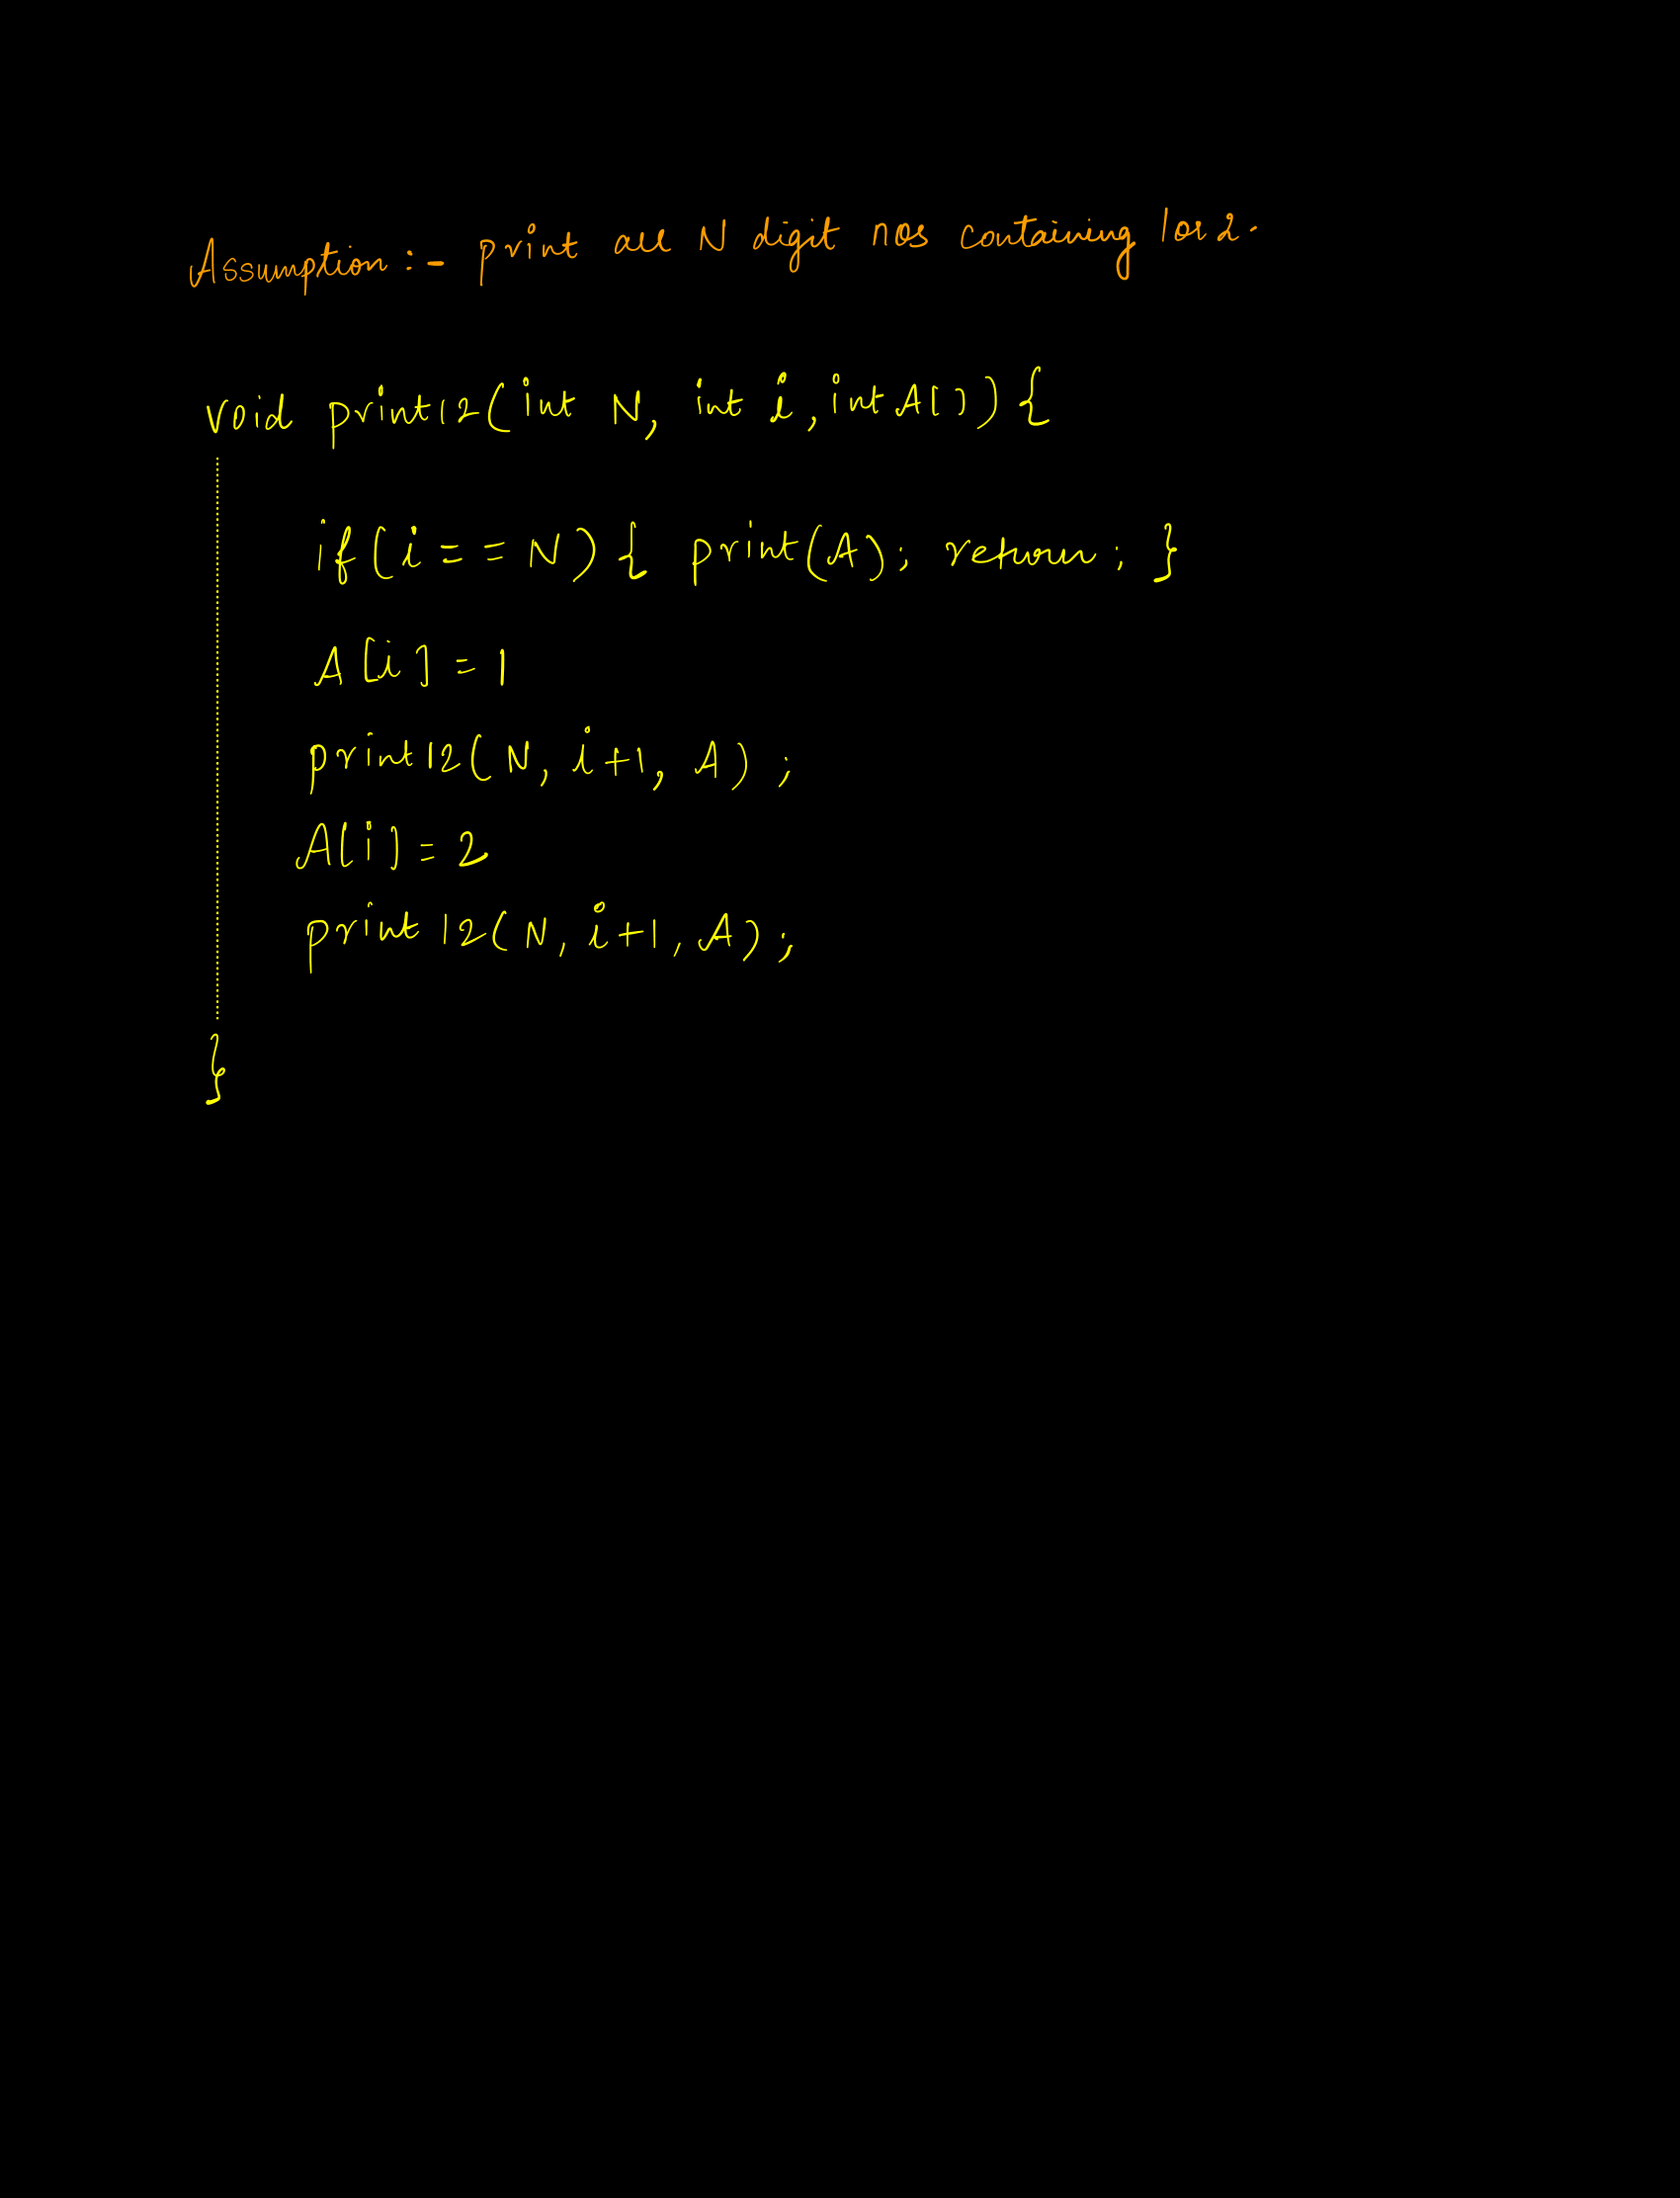 Assumption :- print all N digit nos containing 1 or 2.
void print12(int N, int i, int A[]) {
if(i==N) { print(A); return; }
A[i] = 1
print12(N, i+1, A);
A[i] = 2
print12(N, i+1, A);
}